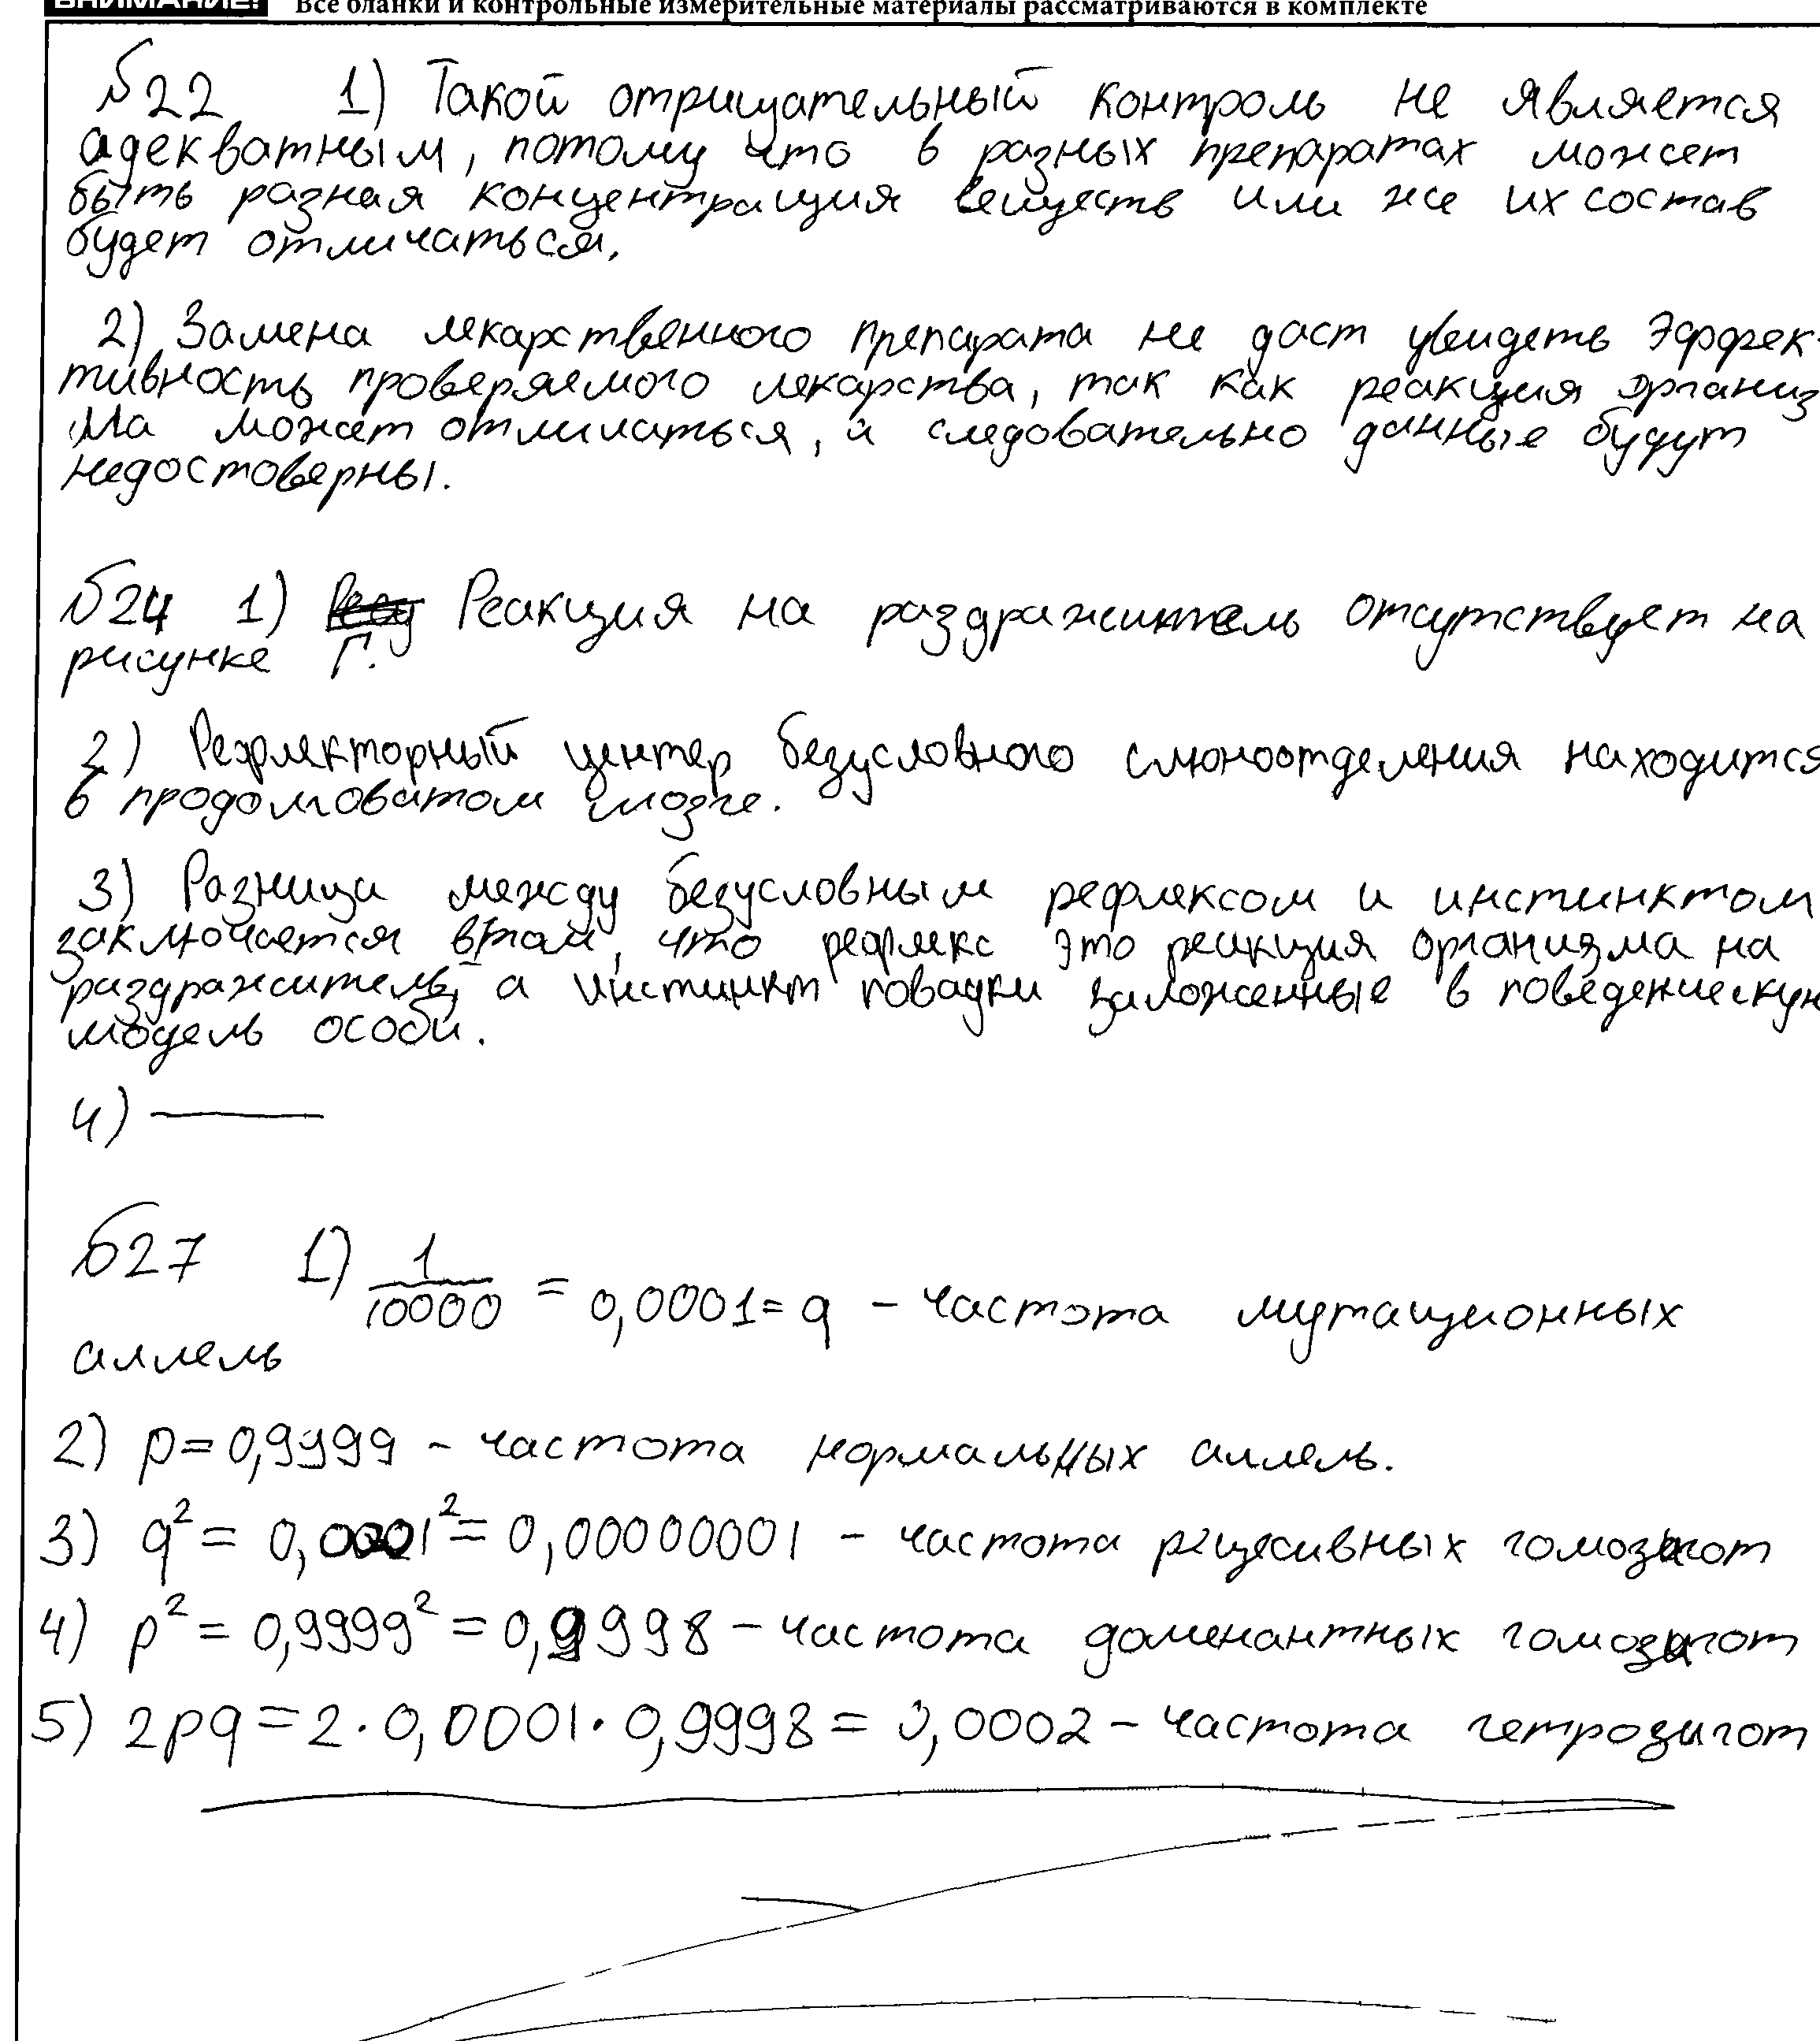 ВНИМАНИЕ! Все бланки и контрольные измерительные материалы рассматриваются в комплекте
№22 1) Такой отрицательный контроль не является
адекватным, потому что в разных препаратах может
быть разная концентрация веществ или же их состав
будет отличаться.
2) Замена лекарственного препарата не даст увидеть эффек-
тивность проверяемого лекарства, так как реакция организ
ма может отличаться, а следовательно данные будут
недостоверны.
№24 1) Реакция на раздражитель отсутствует на
рисунке Г.
2) Рефлекторный центер безусловного слюноотделения находится
в продолговатом мозге.
3) Разница между безусловным рефлексом и инстинктом
заключается в том, что рефлекс это реакция организма на
раздражитель, а инстинкт повадки заложенные в поведенческую
модель особи.
4) ———
№27 1) 1/10000 = 0,0001 = q – частота мутационных
аллель
2) p = 0,9999 – частота нормальных аллель.
3) q² = 0,0001² = 0,00000001 – частота рецесивных гомозигот
4) p² = 0,9999² = 0,9998 – частота доменантных гомозигот
5) 2pq = 2 · 0,0001 · 0,9998 = 0,0002 – частота гетрозигот